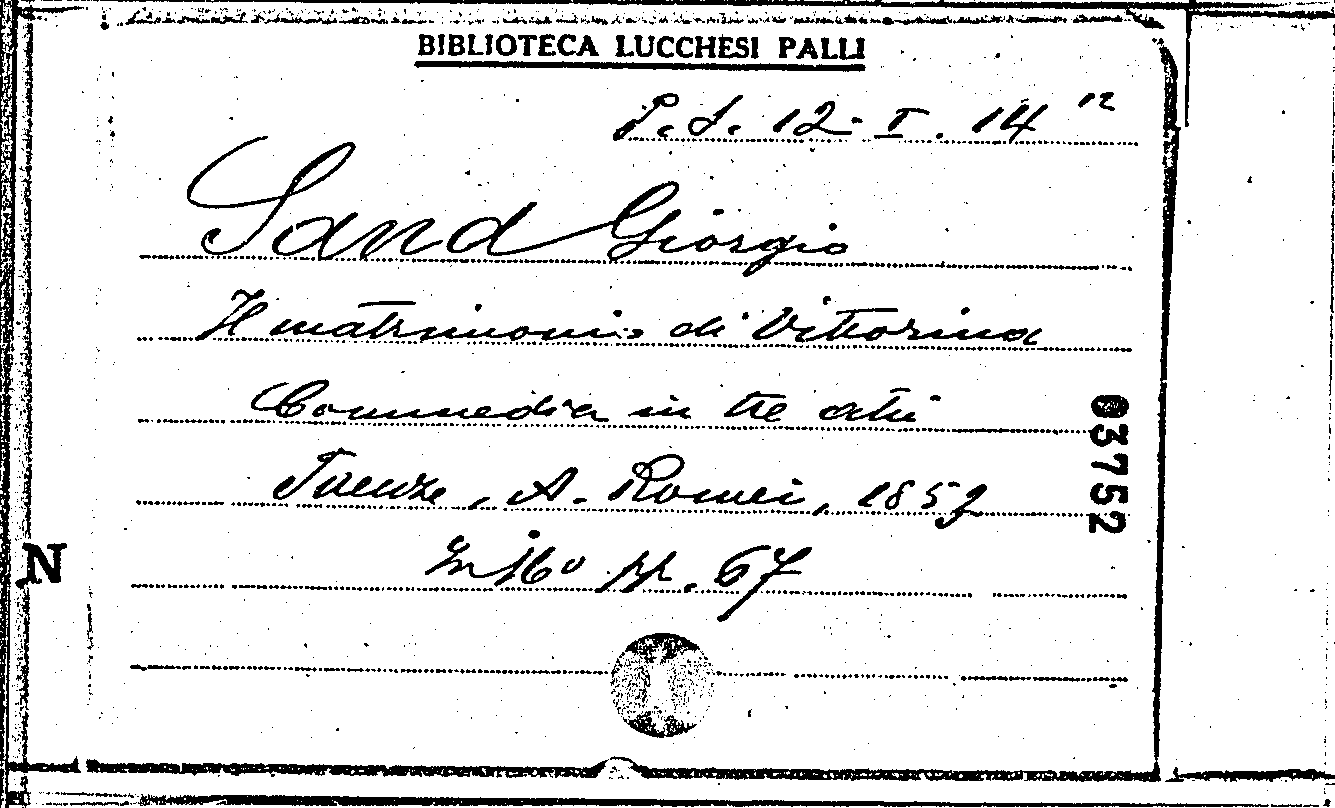 BIBLIOTECA LUCCHESI PALLI
P. S. 12. I. 14 12
Sand Giorgio
Il matrimonio di Vittorina
Commedia in tre atti
Firenze, A. Romei, 1852
In 16° pp. 67
03752
N